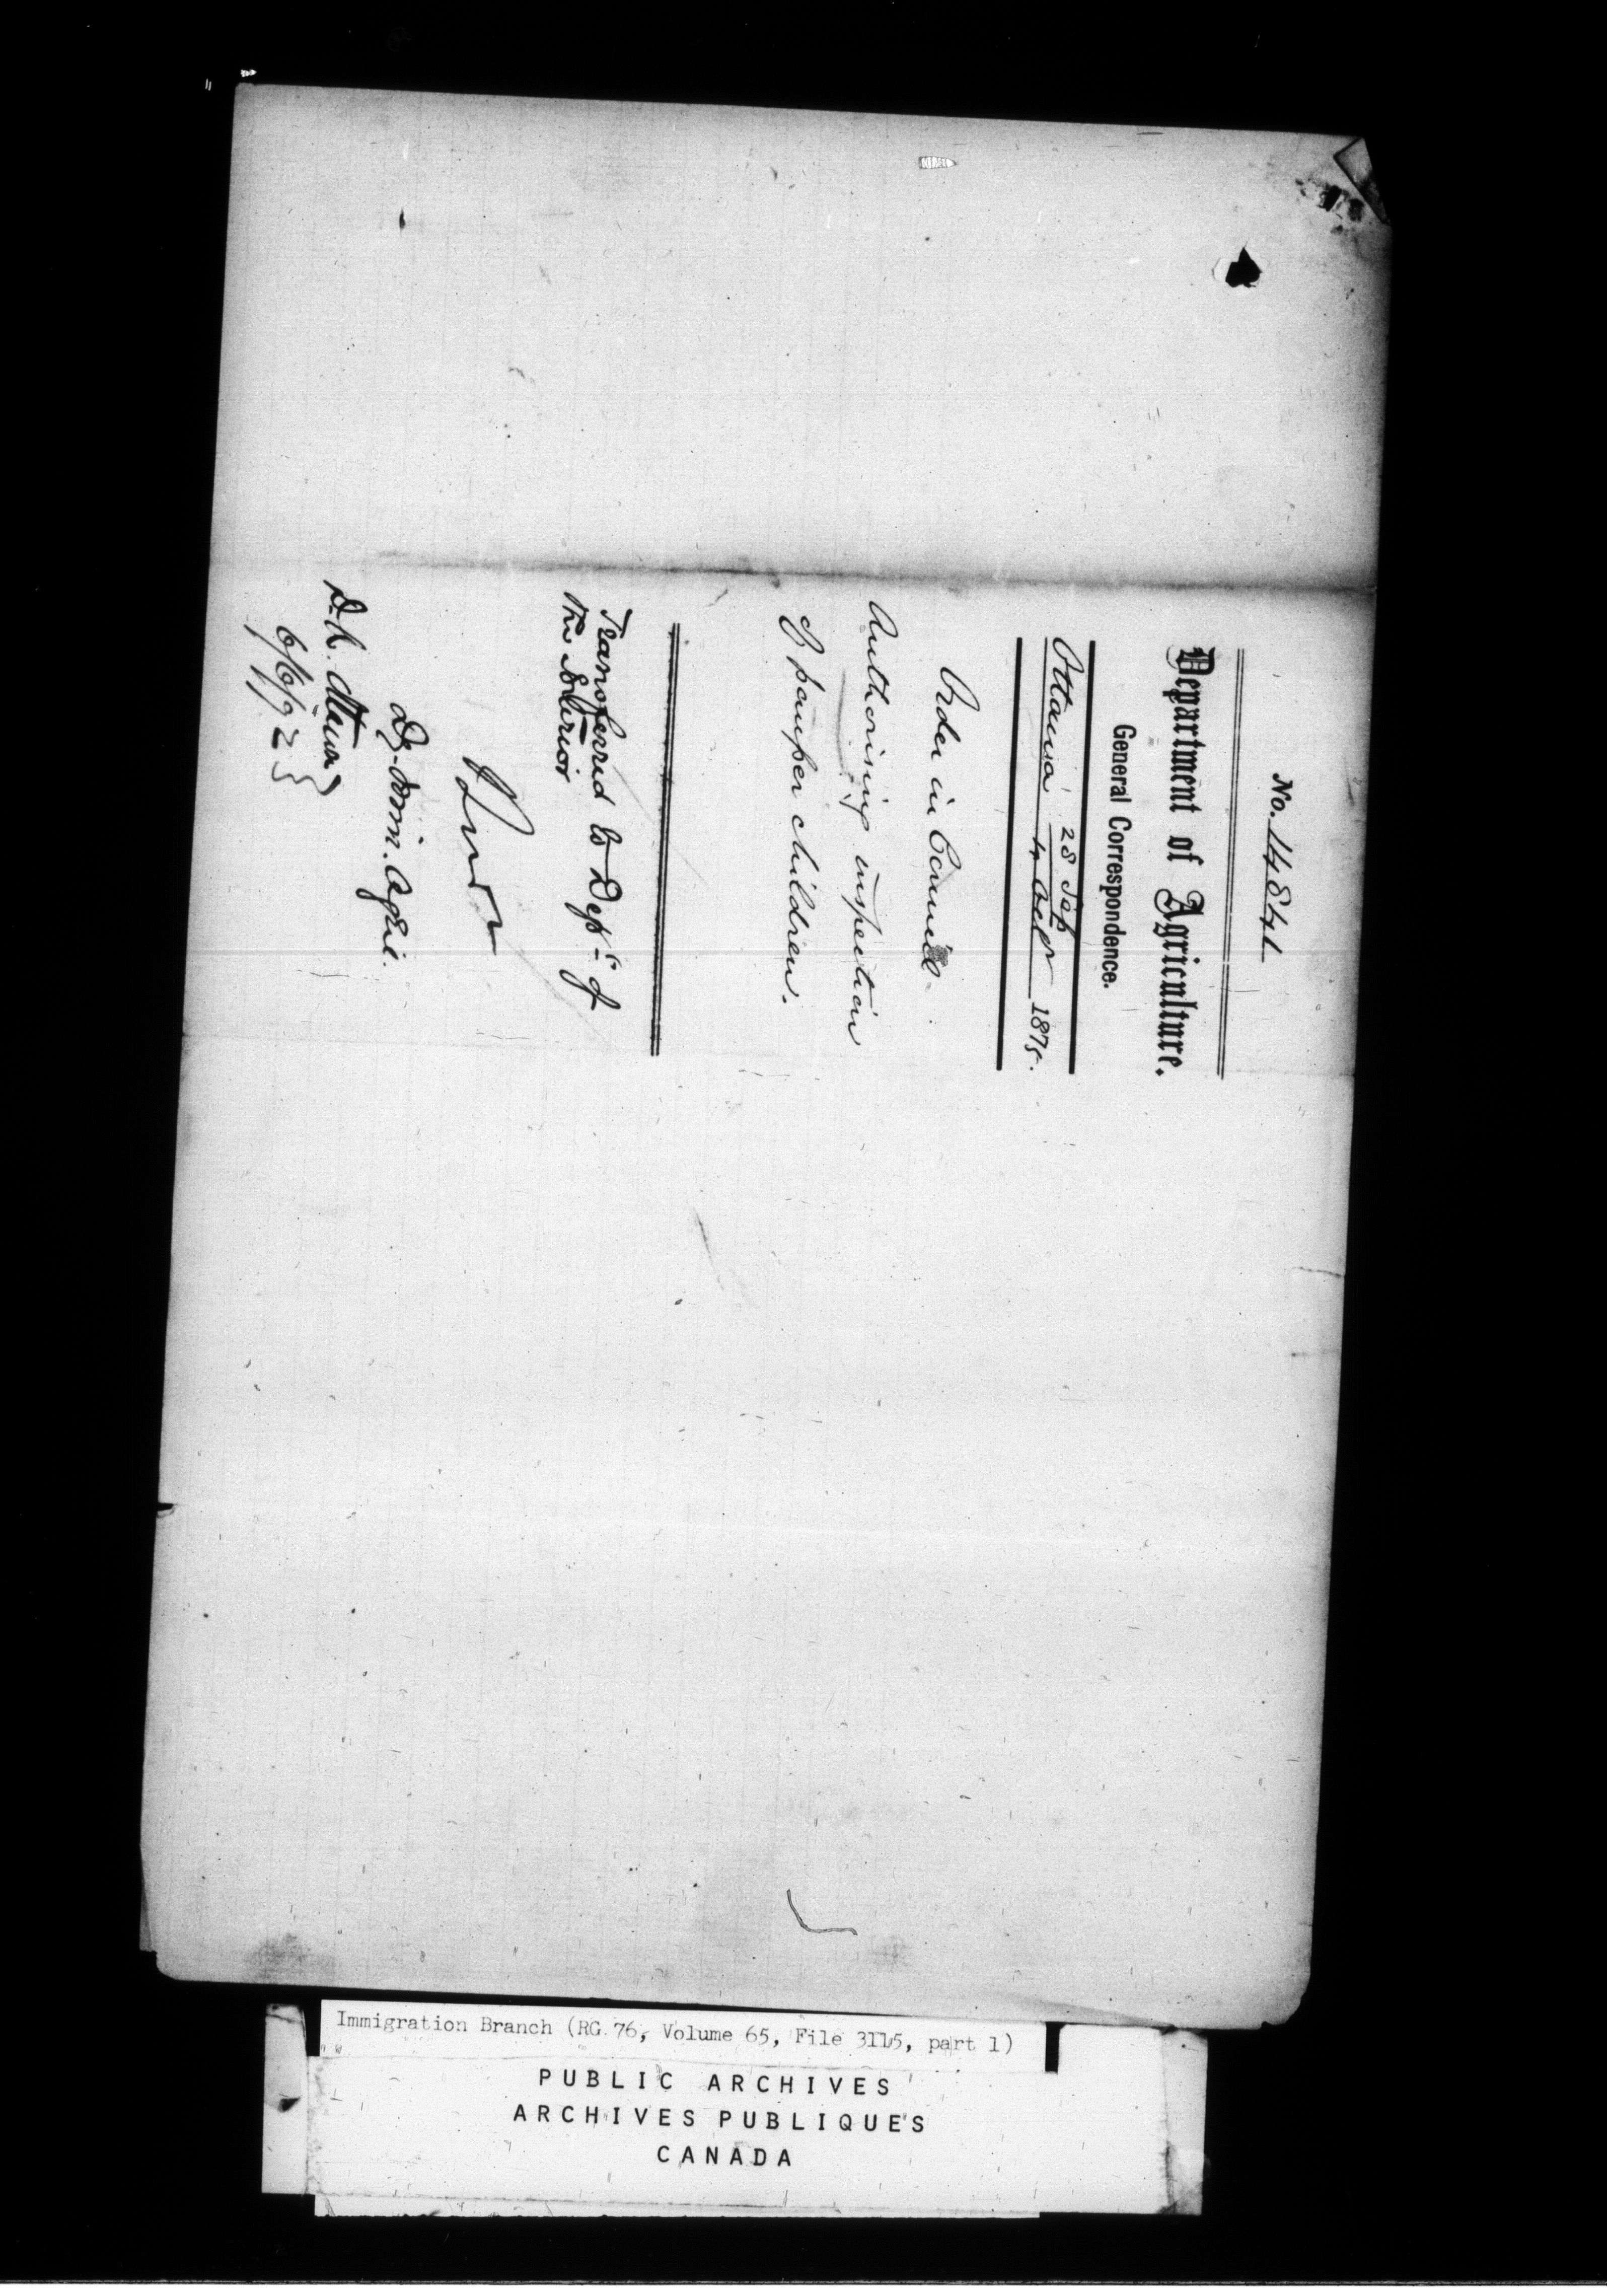 No. 14841
Department of Agriculture.
General Correspondence.
28 Sep
Ottawa 4 Oct 1875.
Order in Council
Authorising inspection
of pauper children.
Transferred to Dept of
the Interior
Dy-Min. Agric.
Ottawa
6/6/92
Immigration Branch (RG 76, Volume 65, File 3115, part 1)
PUBLIC ARCHIVES
ARCHIVES PUBLIQUES
CANADA